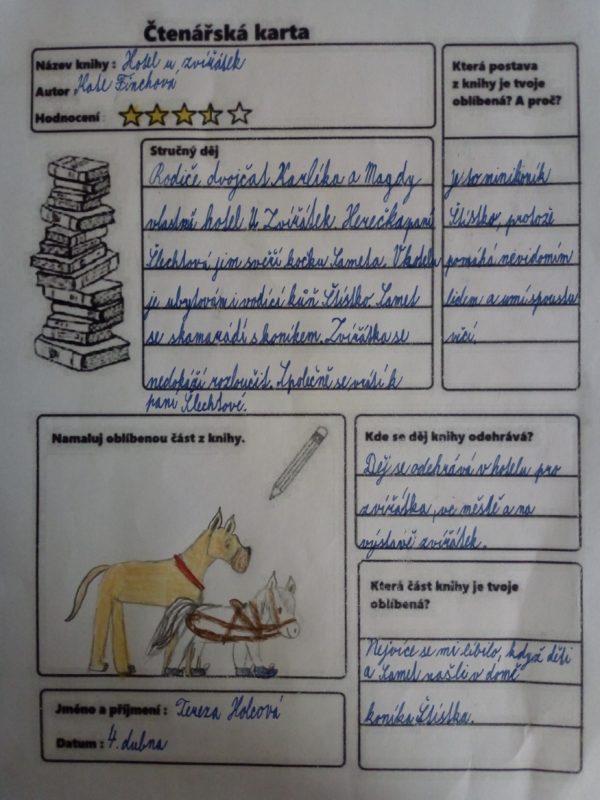 Čtenářská karta
Název knihy : Hotel u zvířátek
Autor Kate Finchová
Hodnocení :
Která postava
z knihy je tvoje
oblíbená? A proč?
je to minikoník
Štístko, protože
pomáhá nevidomím
lidem a umí spoustu
věcí.
Stručný děj
Rodiče dvojčat Karlíka a Magdy
vlastní hotel U Zvířátek. Herečka paní
Šlechtová jim svěří kocku Sameta. V hotelu
je ubytován i vodící kůň Štístko. Samet
se skamarádí s koníkem. Zvířátka se
nedokáží rozloučit. Společně se vrátí k
paní Šlechtové.
Namaluj oblíbenou část z knihy.
Kde se děj knihy odehrává?
Děj se odehrává v hotelu pro
zvířátka, ve městě a na
výstavě zvířátek.
Která část knihy je tvoje
oblíbená?
Nejvíce se mi líbilo, když děti
a Samet našli v domě
koníka Štístka.
Jméno a příjmení : Tereza Holcová
Datum : 4. dubna